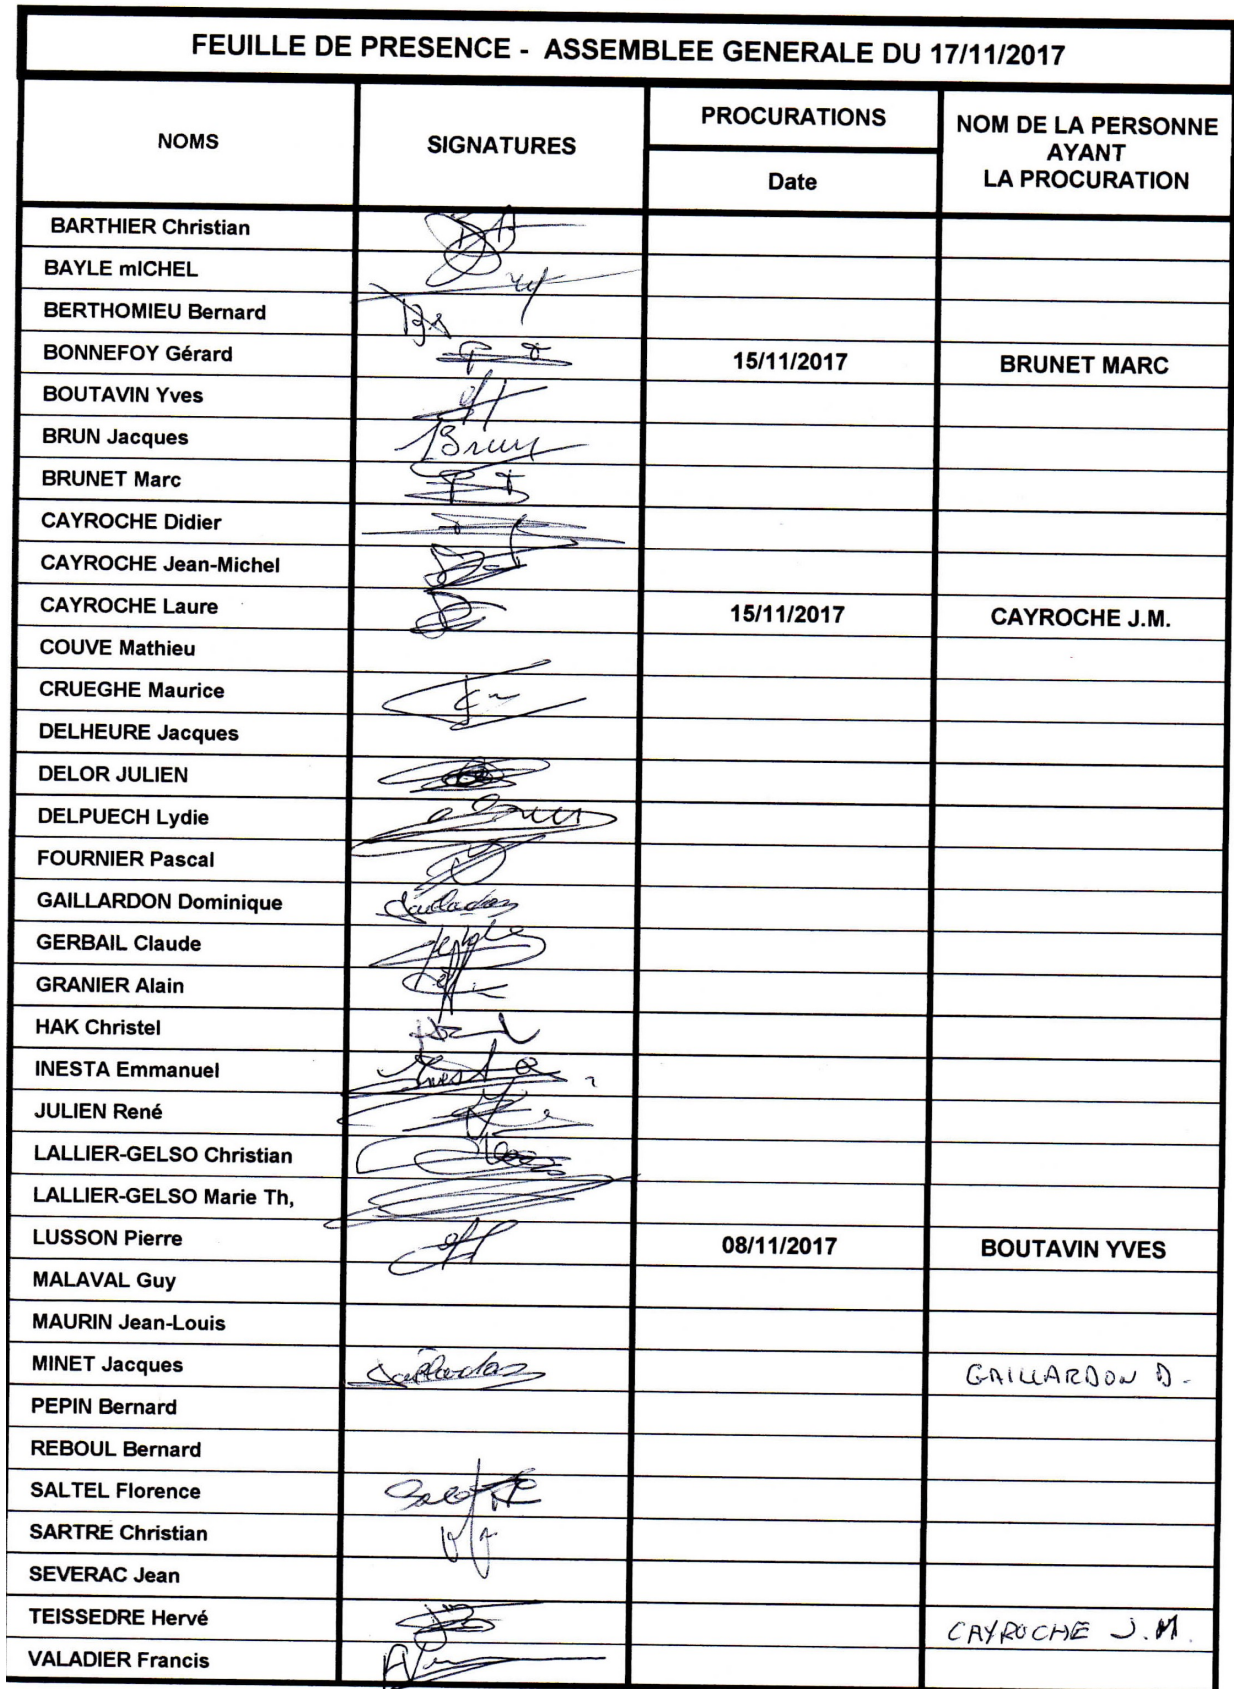 FEUILLE DE PRESENCE - ASSEMBLEE GENERALE DU 17/11/2017
NOMS
SIGNATURES
PROCURATIONS
Date
NOM DE LA PERSONNE
AYANT
LA PROCURATION
BARTHIER Christian
BAYLE mICHEL
BERTHOMIEU Bernard
BONNEFOY Gérard 15/11/2017 BRUNET MARC
BOUTAVIN Yves
BRUN Jacques
BRUNET Marc
CAYROCHE Didier
CAYROCHE Jean-Michel
CAYROCHE Laure 15/11/2017 CAYROCHE J.M.
COUVE Mathieu
CRUEGHE Maurice
DELHEURE Jacques
DELOR JULIEN
DELPUECH Lydie
FOURNIER Pascal
GAILLARDON Dominique
GERBAIL Claude
GRANIER Alain
HAK Christel
INESTA Emmanuel
JULIEN René
LALLIER-GELSO Christian
LALLIER-GELSO Marie Th,
LUSSON Pierre 08/11/2017 BOUTAVIN YVES
MALAVAL Guy
MAURIN Jean-Louis
MINET Jacques GAILLARDON D.
PEPIN Bernard
REBOUL Bernard
SALTEL Florence
SARTRE Christian
SEVERAC Jean
TEISSEDRE Hervé CAYROCHE J.M.
VALADIER Francis